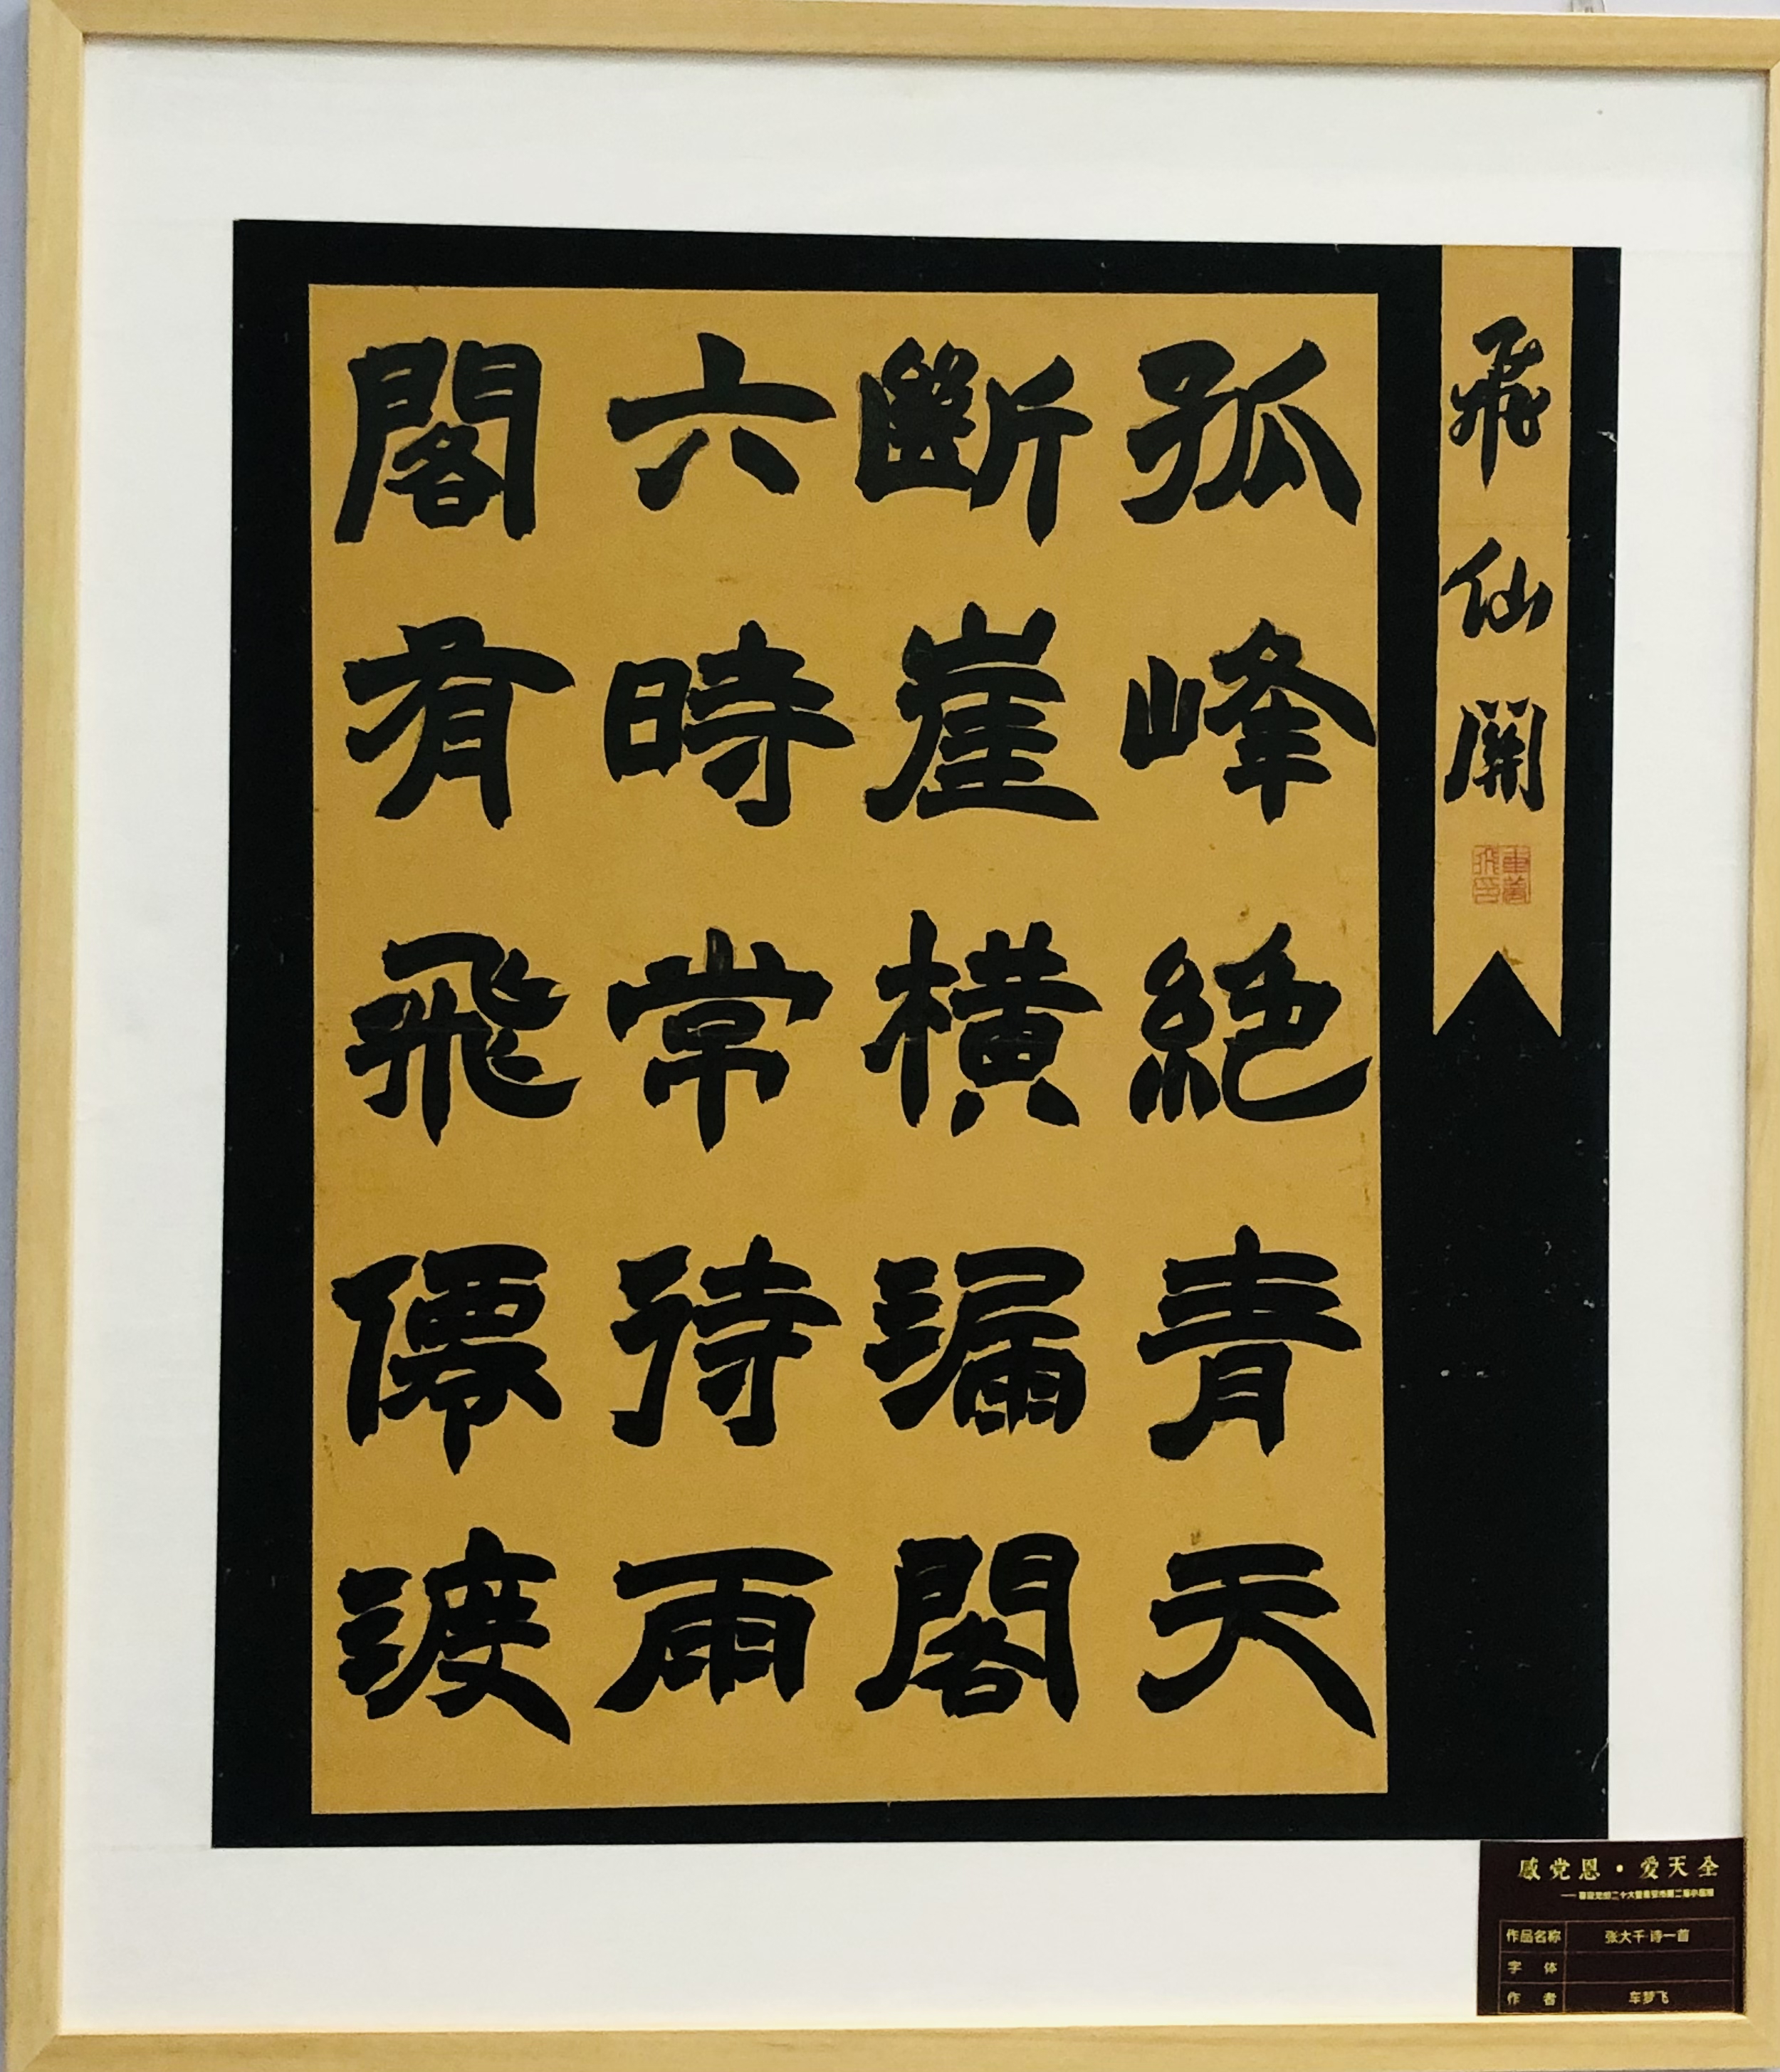 飛仙關
孤峰絕青天
斷崖橫漏閣
六時常待雨
閣有飛僊渡
車夢飛印
感党恩·爱天全
作品名称 张大千·诗一首
字体
作者 车梦飞